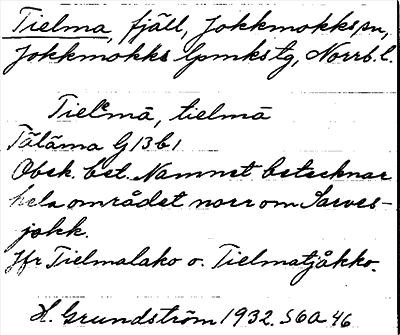 Tielma, fjäll, Jokkmokks sn,
Jokkmokks lpmks tg, Norrb. l.
Tielᵉmā, tielmā
Täläma G 13 b 1
Obek. bet. Namnet betecknar
hela området norr om Sarves-
jokk.
Jfr Tielmalako o. Tielmatjåkko.
H. Grundström 1932. S6A 46